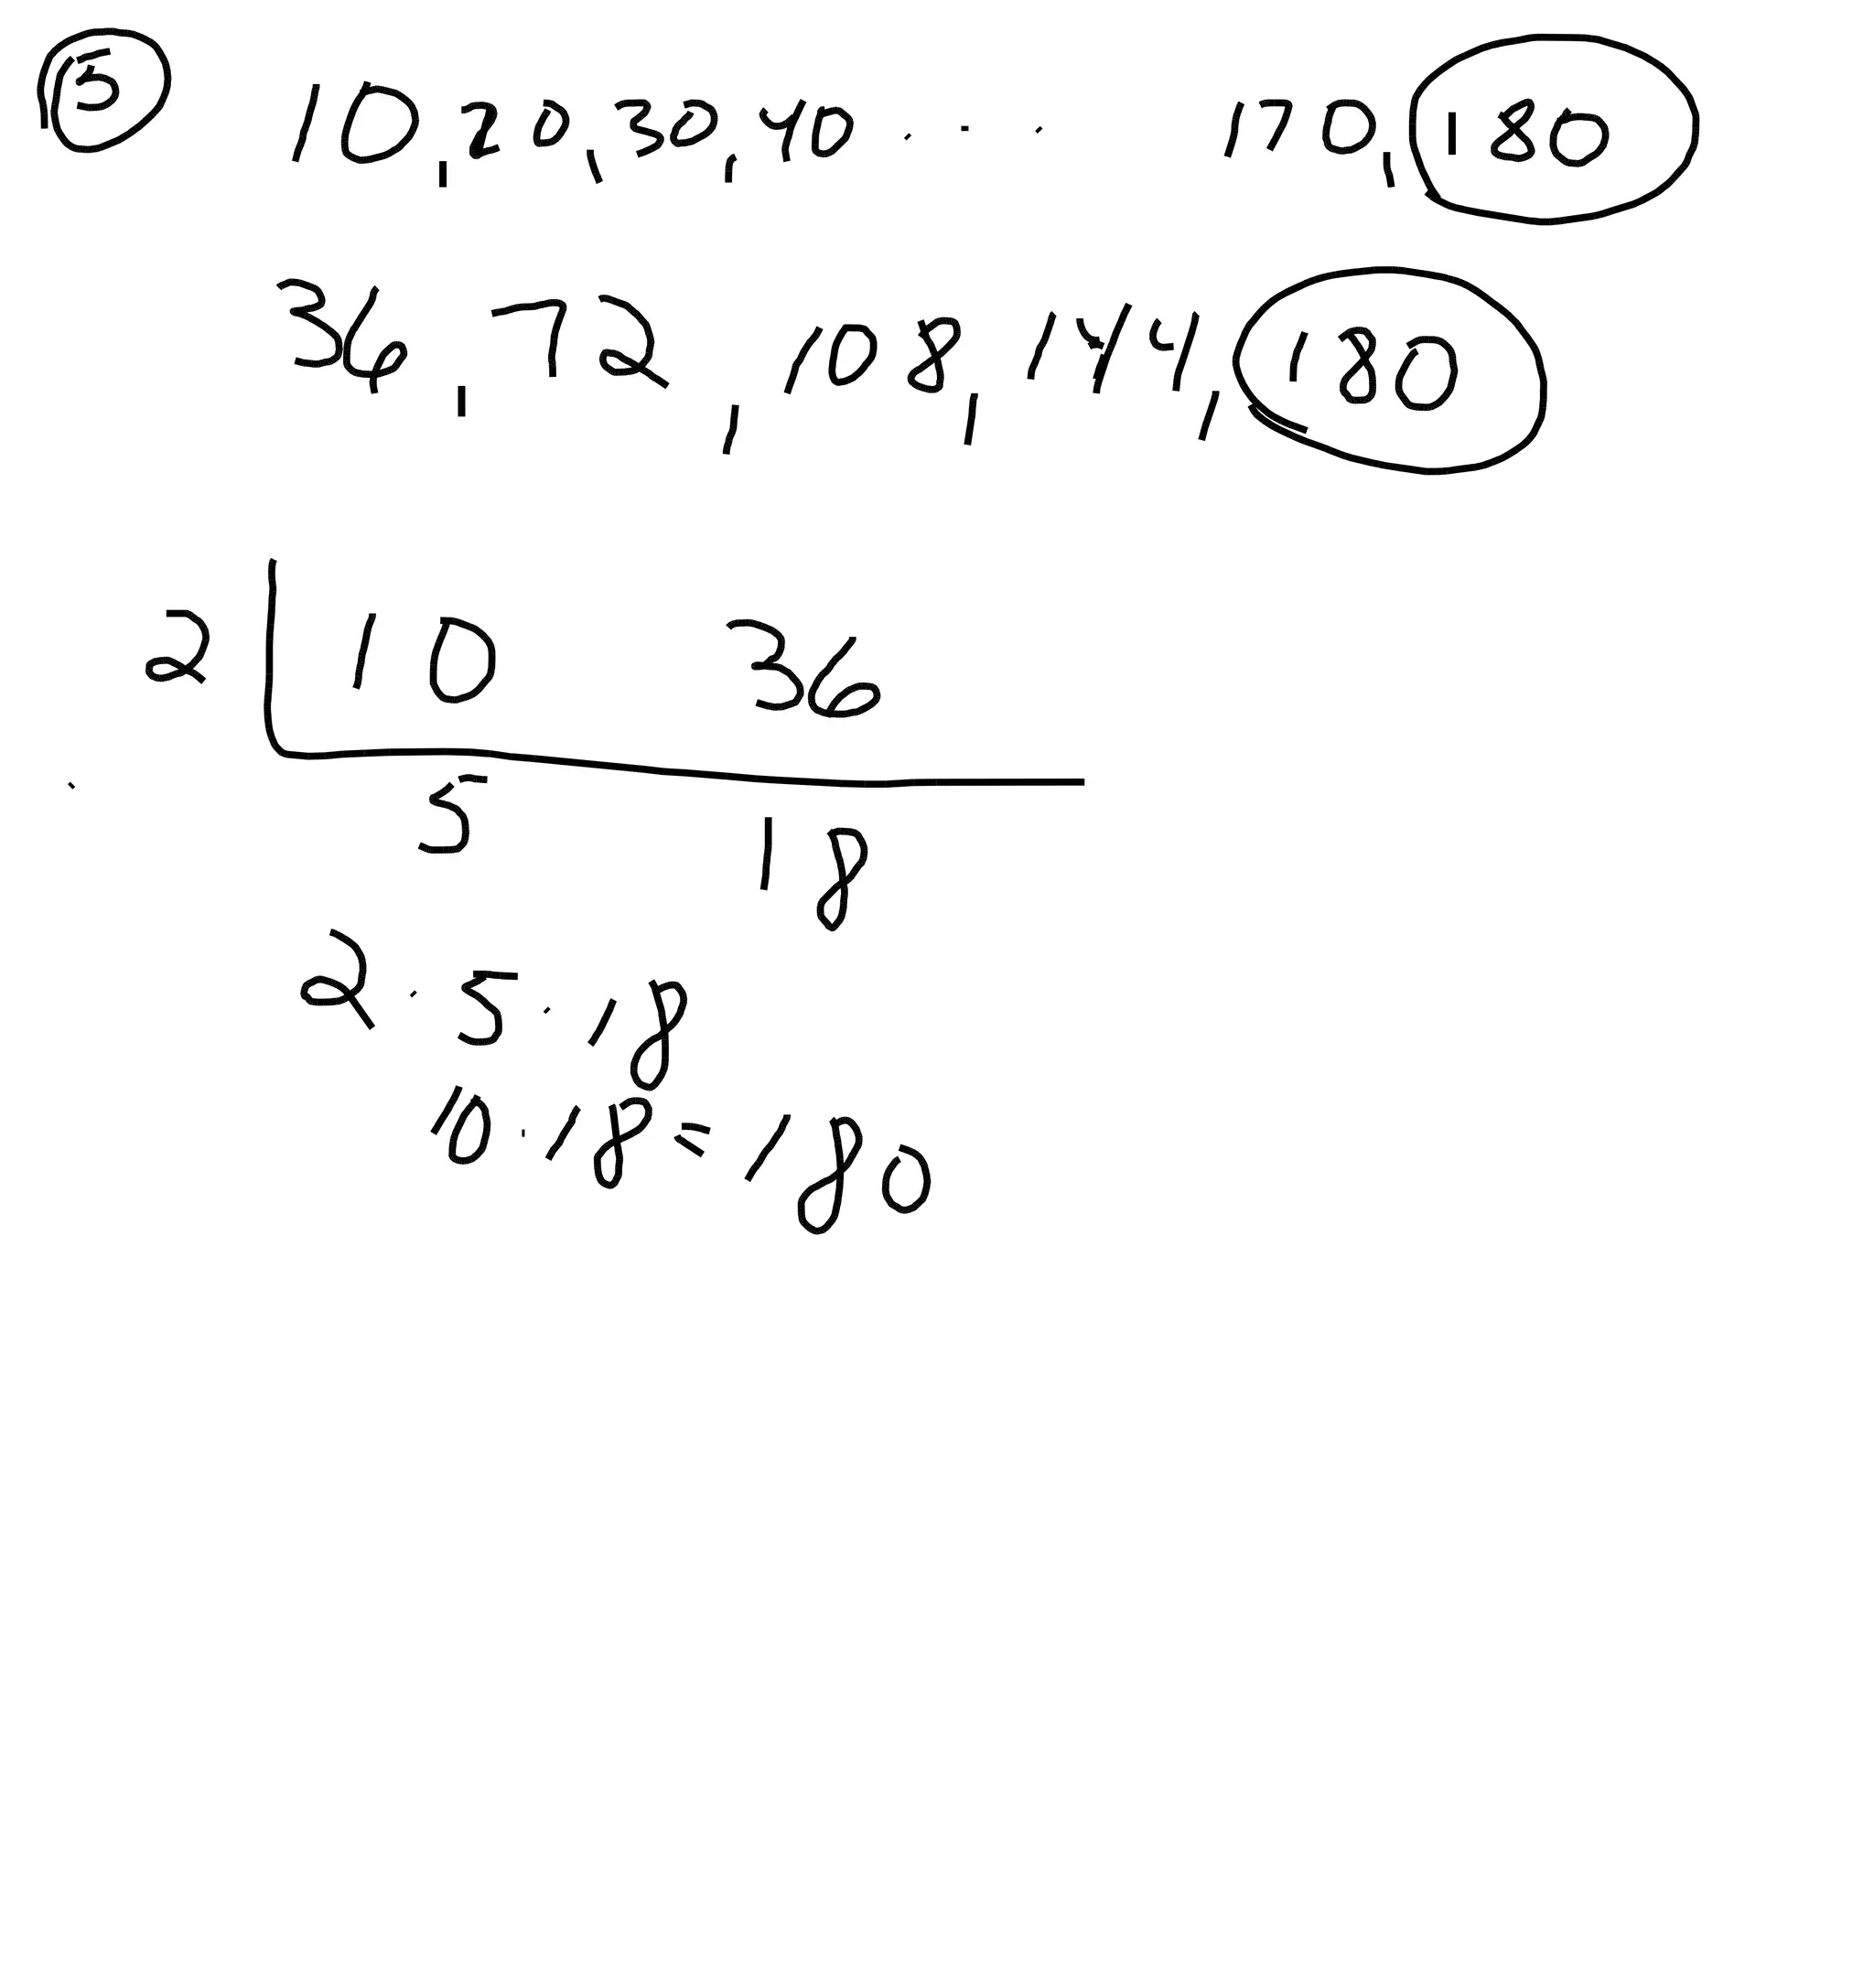 5 10,20,30,40 . . . 170,180
36,72,108,144,180
2 10 36
5 18
2·5·18
10·18=180